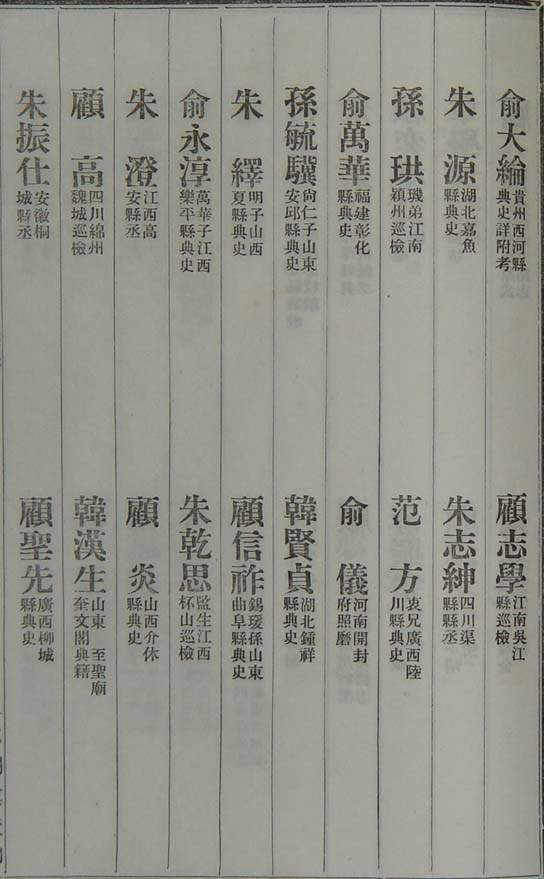 俞大綸 貴州西河縣典史詳附考
顧志學 江南吳江縣巡檢
朱源 湖北嘉魚縣典史
朱志紳 四川渠縣縣丞
孫珙 璣弟江南潁州巡檢
范方 衷兄廣西陸川縣典史
俞萬華 福建彰化縣典史
俞儀 河南開封府照磨
孫毓驥 尙仁子山東安邱縣典史
韓賢貞 湖北鍾祥縣典史
朱繹 明子山西夏縣典史
顧信祚 錫孫山東曲阜縣典史
俞永淳 萬華子江西樂平縣典史
朱乾思 監生江西杯山巡檢
朱澄 江西高安縣丞
顧炎 山西介休縣典史
顧高 四川綿州魏城巡檢
韓漢生 山東至聖廟奎文閣典籍
朱振仕 安徽桐城縣丞
顧聖先 廣西柳城縣典史